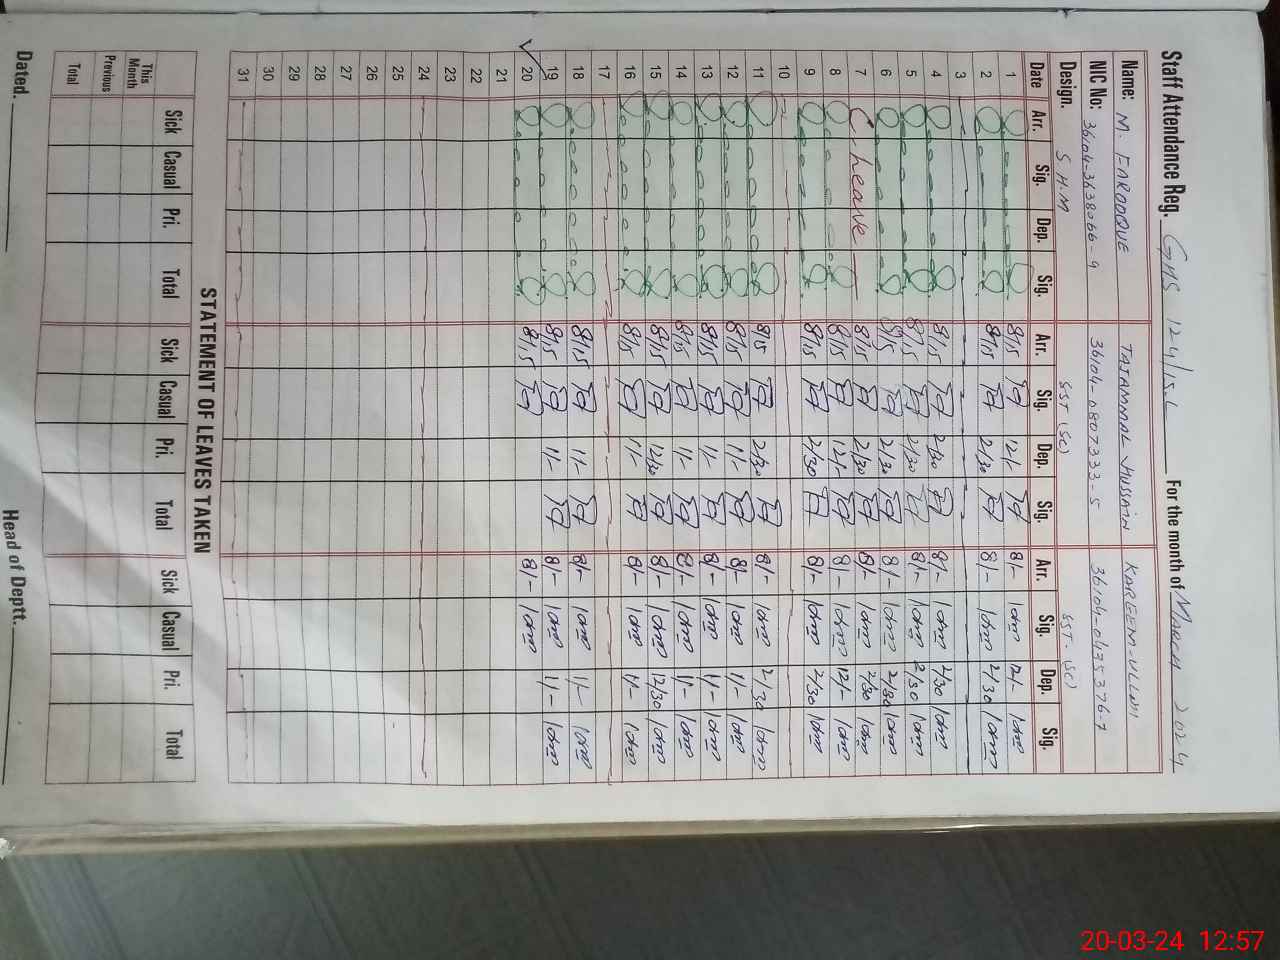 Staff Attendance Reg. GHS 124/15.L For the month of MARCH 2024
Name: M. FAROOQUE TAJAMMAL HUSSAIN KAREEM-ULLAH
NIC No: 36104-3638066-9 36104-0807333-5 36104-0435376-7
Design. S.H.M SST (SC) SST. (SC)
Date Arr. Sig. Dep. Sig. Arr. Sig. Dep. Sig. Arr. Sig. Dep. Sig.
1 8/15 12/- 8/- 12/-
2 8/15 2/30 8/- 2/30
3
4 8/15 2/30 8/- 2/30
5 8/15 2/30 8/- 2/30
6 8/15 2/30 8/- 2/30
7 C Leave 8/15 2/30 8/- 2/30
8 8/15 12/- 8/- 12/-
9 8/15 2/30 8/- 2/30
10
11 8/15 2/30 8/- 2/30
12 8/15 1/- 8/- 1/-
13 8/15 1/- 8/- 1/-
14 8/15 1/- 8/- 1/-
15 8/15 12/30 8/- 12/30
16 8/15 1/- 8/- 1/-
17
18 8/15 1/- 8/- 1/-
19 8/15 1/- 8/- 1/-
20 8/15 8/-
21
22
23
24
25
26
27
28
29
30
31
STATEMENT OF LEAVES TAKEN
Sick Casual Pri. Total Sick Casual Pri. Total Sick Casual Pri. Total
This Month
Previous
Total
Dated. Head of Deptt.
20-03-24 12:57